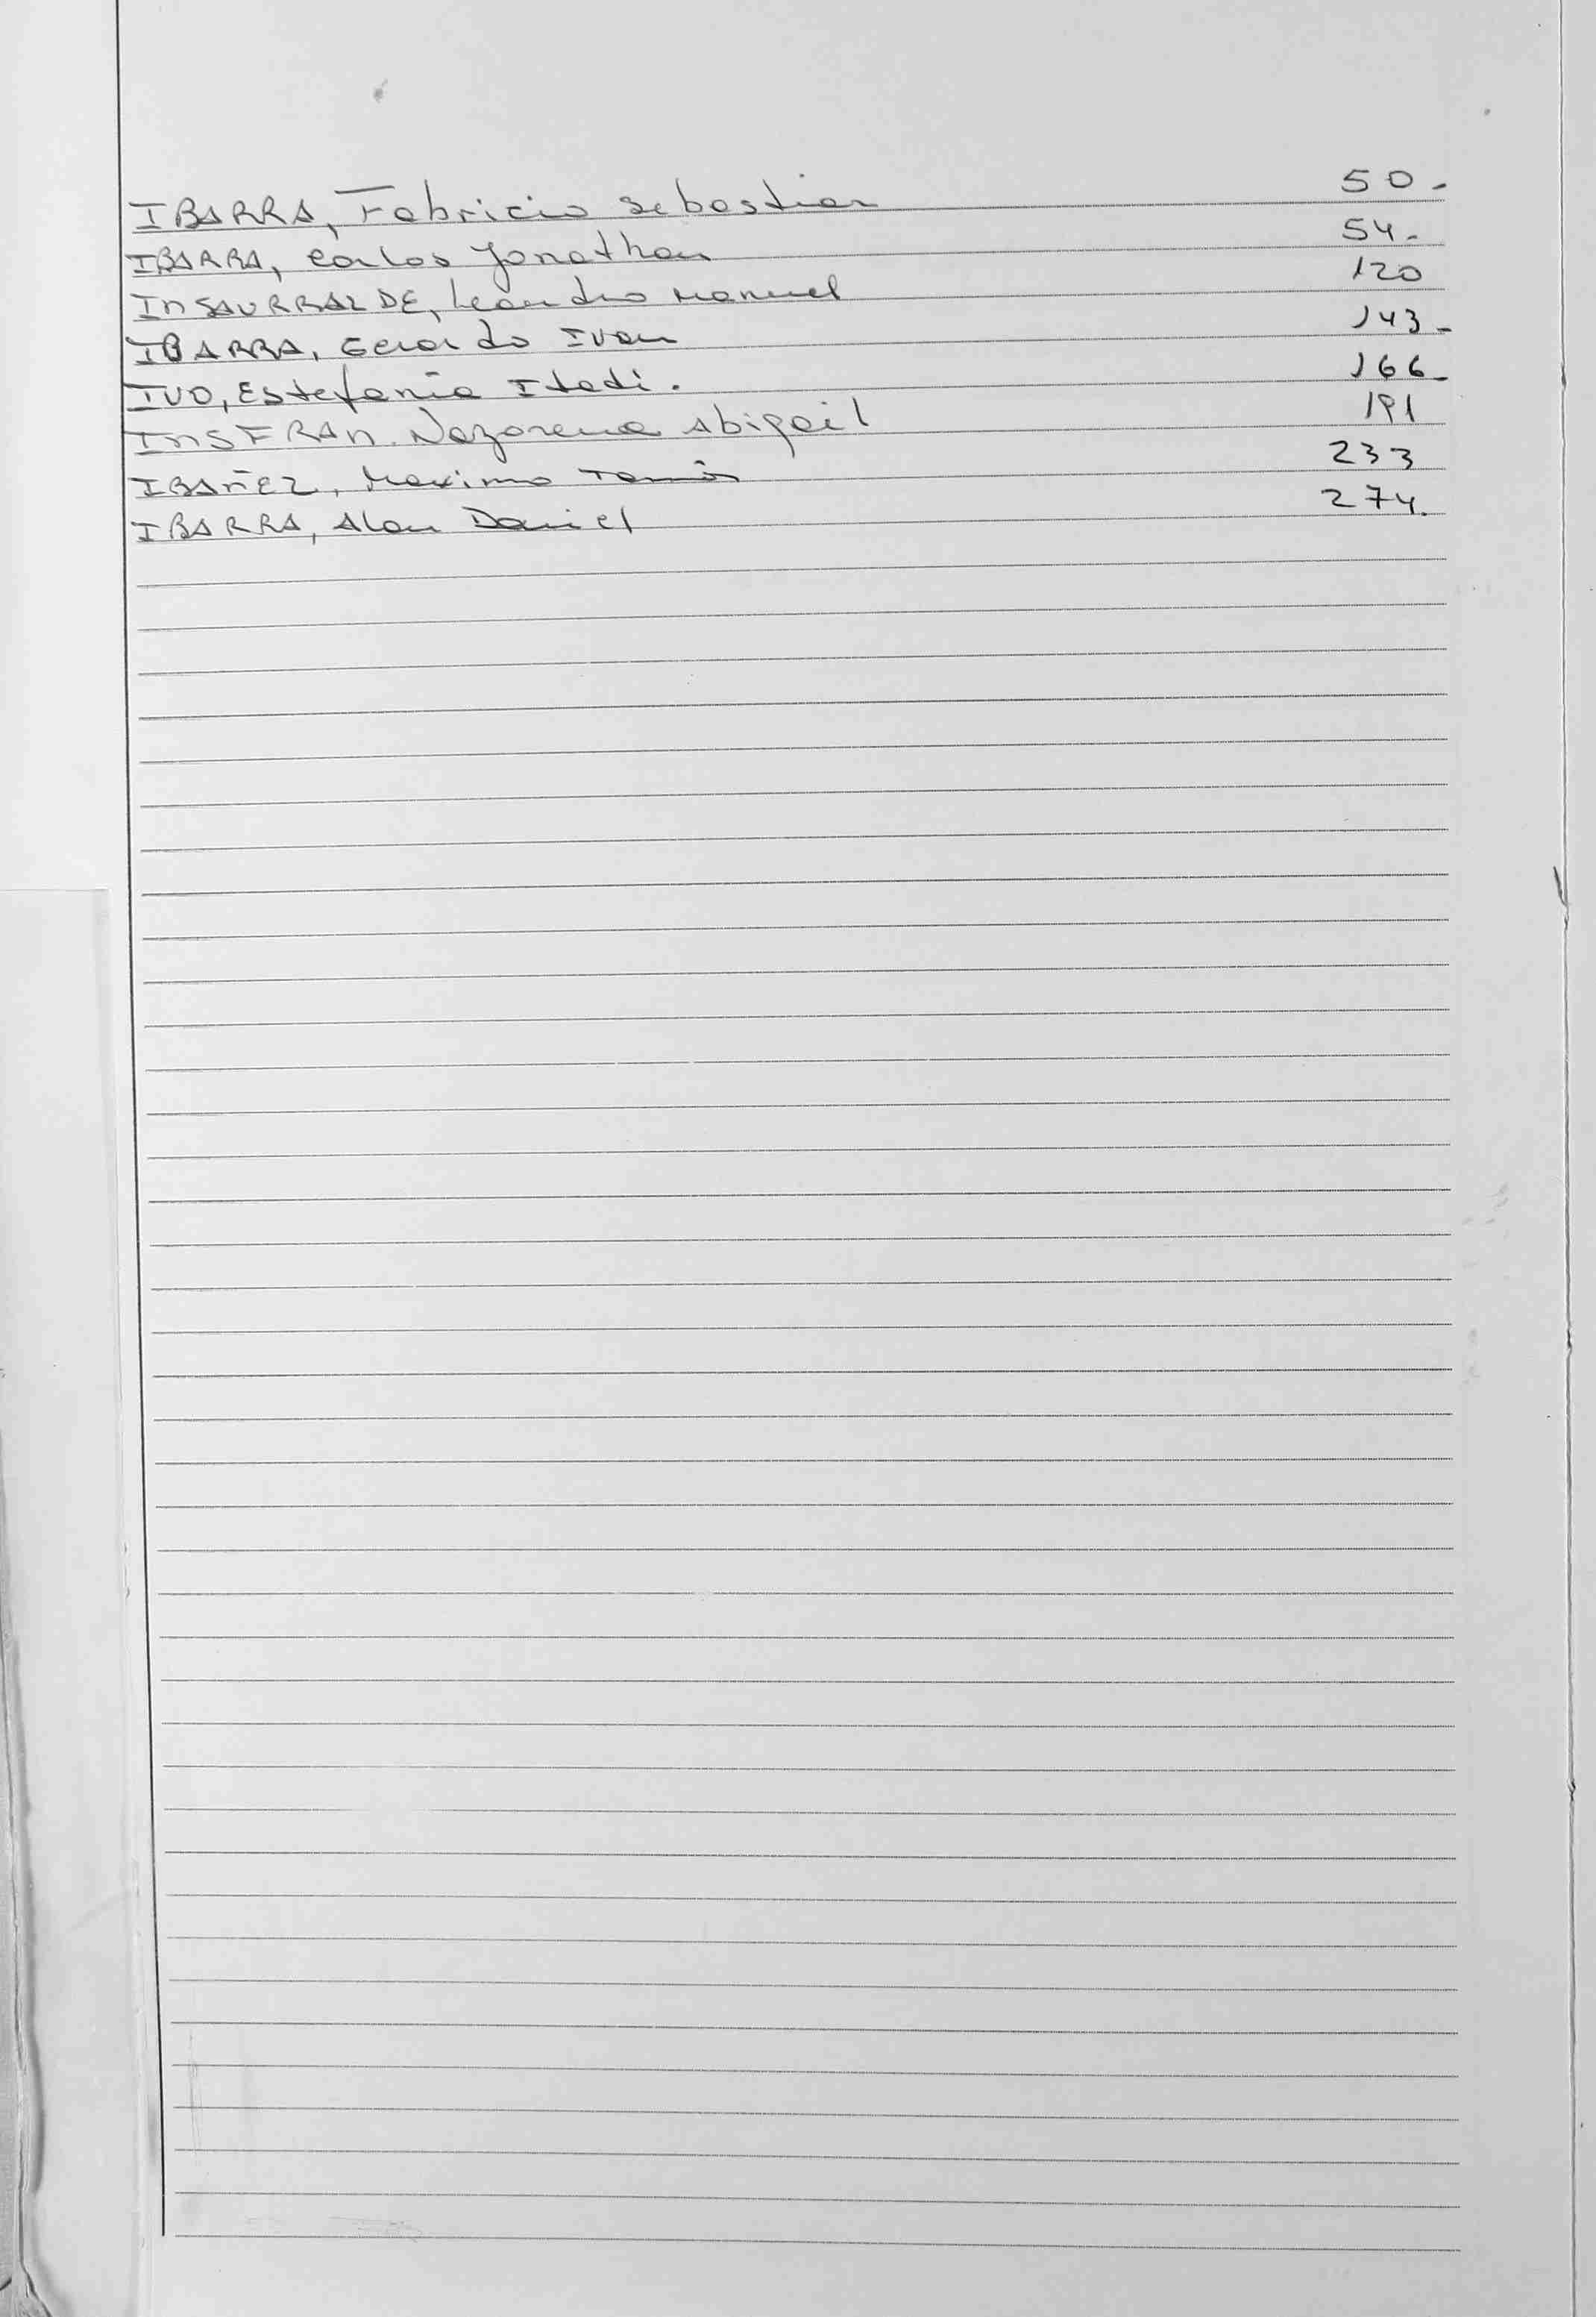 IBARRA, Fabricio Sebastian 50.
IBARRA, Carlos Jonathan 54.
INSAURRALDE, Leandro Manuel 120
IBARRA, Gerardo Ivan 143.
IVO, Estefania Itati. 166.
INSFRAN. Nazarena Abigail 191
IBAÑEZ, Maximo Tomás 233
IBARRA, Alan Daniel 274.